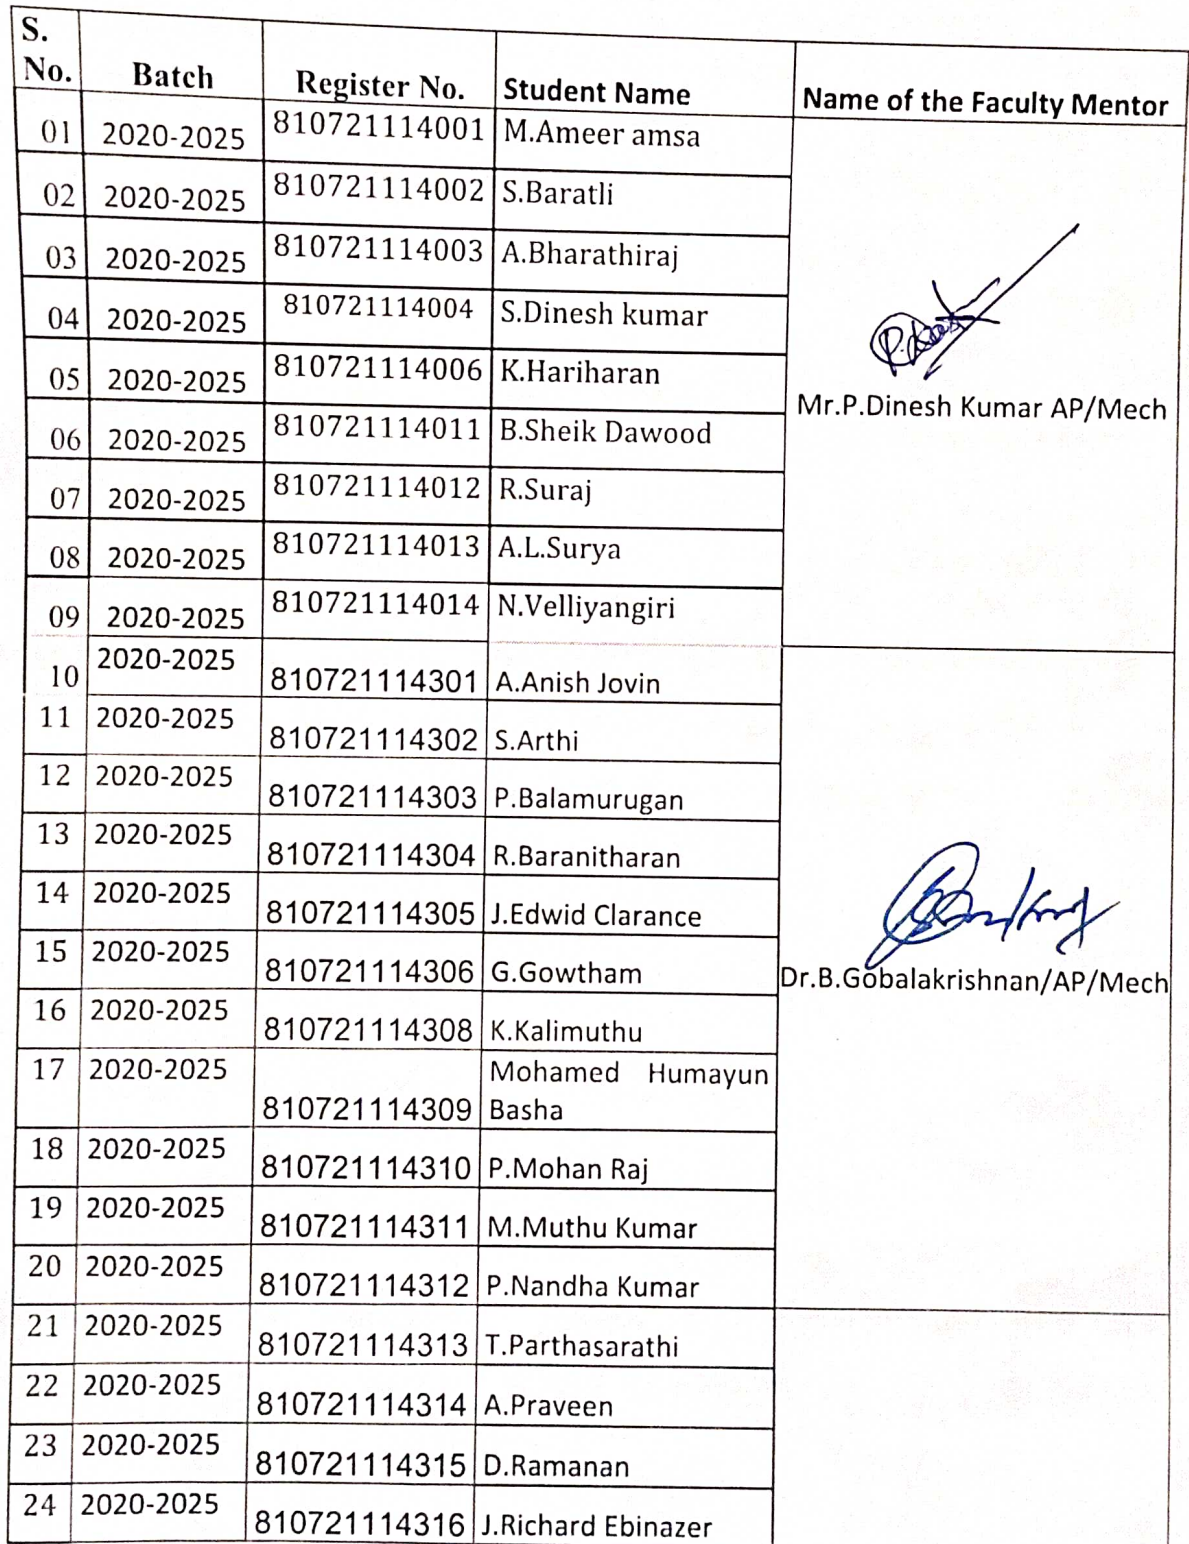 S. No. Batch Register No. Student Name Name of the Faculty Mentor
01 2020-2025 810721114001 M.Ameer amsa
02 2020-2025 810721114002 S.Baratli
03 2020-2025 810721114003 A.Bharathiraj
04 2020-2025 810721114004 S.Dinesh kumar
05 2020-2025 810721114006 K.Hariharan
Mr.P.Dinesh Kumar AP/Mech
06 2020-2025 810721114011 B.Sheik Dawood
07 2020-2025 810721114012 R.Suraj
08 2020-2025 810721114013 A.L.Surya
09 2020-2025 810721114014 N.Velliyangiri
10 2020-2025 810721114301 A.Anish Jovin
11 2020-2025 810721114302 S.Arthi
12 2020-2025 810721114303 P.Balamurugan
13 2020-2025 810721114304 R.Baranitharan
14 2020-2025 810721114305 J.Edwid Clarance
15 2020-2025 810721114306 G.Gowtham
Dr.B.Gobalakrishnan/AP/Mech
16 2020-2025 810721114308 K.Kalimuthu
17 2020-2025 810721114309 Mohamed Humayun Basha
18 2020-2025 810721114310 P.Mohan Raj
19 2020-2025 810721114311 M.Muthu Kumar
20 2020-2025 810721114312 P.Nandha Kumar
21 2020-2025 810721114313 T.Parthasarathi
22 2020-2025 810721114314 A.Praveen
23 2020-2025 810721114315 D.Ramanan
24 2020-2025 810721114316 J.Richard Ebinazer